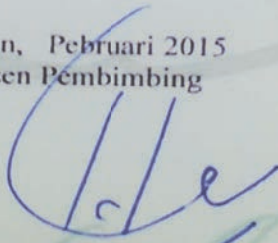 n, Pebruari 2015
en Pembimbing